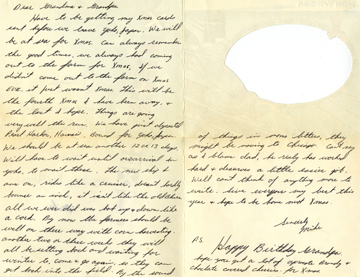 Dear Grandma & Grandpa
Have to be getting my Xmas cards
sent before we leave Yoko, Japan. We will
be at sea for Xmas. Can always remember
the good times we always had
coming
out to the farm for Xmas. If we
didn't come out to the farm on Xmas
eve. it just wasn't Xmas. This will be
the fourth Xmas I have been away, &
the last I hope. Things are going
very well this run. We have just departed
Pearl Harbor, Hawaii, bound for Yoko, Japan.
We should be at sea another 12 or 13 days.
Will have to wait until
Yoko, to
this. The new ship I
am on, rides like a
all we ever did was bob up & down like
a cork. By now the farmers should be
well on there way with corn harvesting.
another two or three weeks they will
all be sitting back and waiting for
winter to come & go again so they can
get back into the field. By the sound
of things in your letter, they
might be moving to
as I
dad, he
has worked
hard & deserves a little easier job.
Well can't think of anything more to
write. Give everyone my best this
year & hope to be home next Xmas
Sincerely
Mike
P.S.
Happy Birthday Grandpa
hope you get a lot of
and
chocolate covered cherries for Xmas